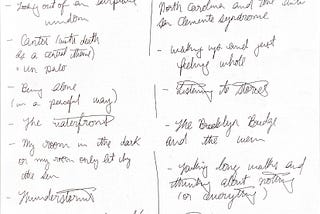 - Looking out of an airplane
window
- Center (with death
as a central theme)
- Being alone
(in a peaceful way)
- The waterfront
- My room in the dark
or my room only lit by
the sun
- Thunderstorms
North Carolina and the
San Clemente syndrome
- waking up and just
feeling whole
- Listening to Stories
- The Brooklyn Bridge
and the
- Taking long walks and
thinking about nothing
(or everything)